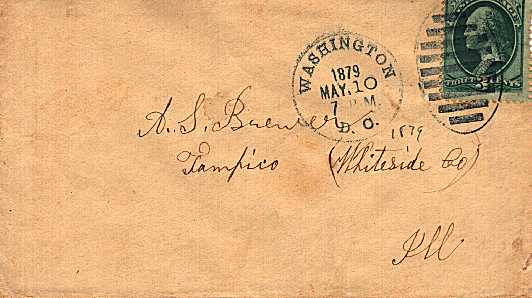 WASHINGTON
1879
MAY. 10
7 P.M.
D. C.
THREE CENTS
A. S. Brewer
1879
Tampico (Whiteside Co)
Ill